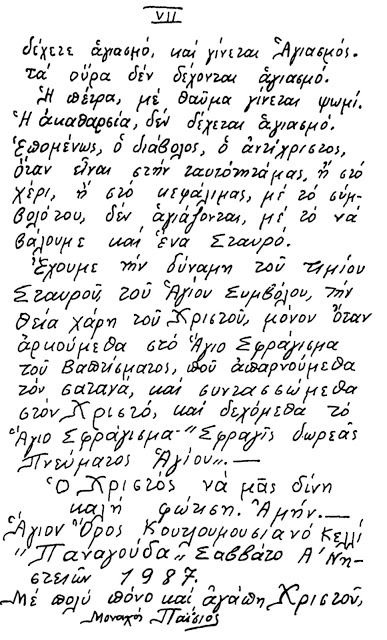 VII
δέχετε ἁγιασμό, καί γίνεται Ἁγιασμός.
τά οὖρα δέν δέχονται ἁγιασμό.
Ἡ πέτρα, μέ θαῦμα γίνεται ψωμί.
Ἡ ἀκαθαρσία, δέν δέχεται ἁγιασμό.
Ἑπομένως, ὁ διάβολος, ὁ ἀντίχριστος,
ὅταν εἶναι στήν ταυτότητάμας, ἤ στό
χέρι, ἤ στό κεφάλιμας, μέ τό σύμ-
βολότου, δέν ἁγιάζονται, μέ τό νά
βάλουμε καί ἕνα Σταυρό.
Ἔχουμε τήν δύναμη τοῦ τιμίου
Σταυροῦ, τοῦ Ἁγίου Συμβόλου, τήν
θεία χάρη τοῦ Χριστοῦ, μόνον ὅταν
ἀρκούμεθα στό Ἅγιο Σφράγισμα
τοῦ Βαπτίσματος, πού ἀπαρνούμεθα
τόν σατανά, καί συντασσώμεθα
στόν Χριστό, καί δεχόμεθα τό
Ἅγιο Σφράγισμα - "Σφραγίς δωρεᾶς
Πνεύματος Ἁγίου". —
Ὁ Χριστός νά μᾶς δίνη
καλή φώτιση. Ἀμήν. —
Ἅγιον Ὄρος Κουτλουμουσιανό κελλί
"Παναγούδα" Σάββατο Α΄ Νη-
στειῶν 1987.
Μέ πολύ πόνο καί ἀγάπη Χριστοῦ,
Μοναχός Παΐσιος